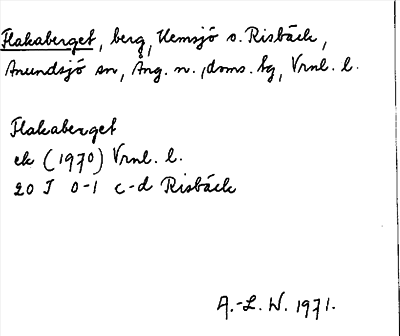 Flakaberget, berg, Kemsjö o. Risbäck,
Anundsjö sn, Ång. n., doms. bg, Vrnl. l.
Flakaberget
ek (1970) Vrnl. l.
20 J 0-1 c-d Risbäck
A.-L. W. 1971.